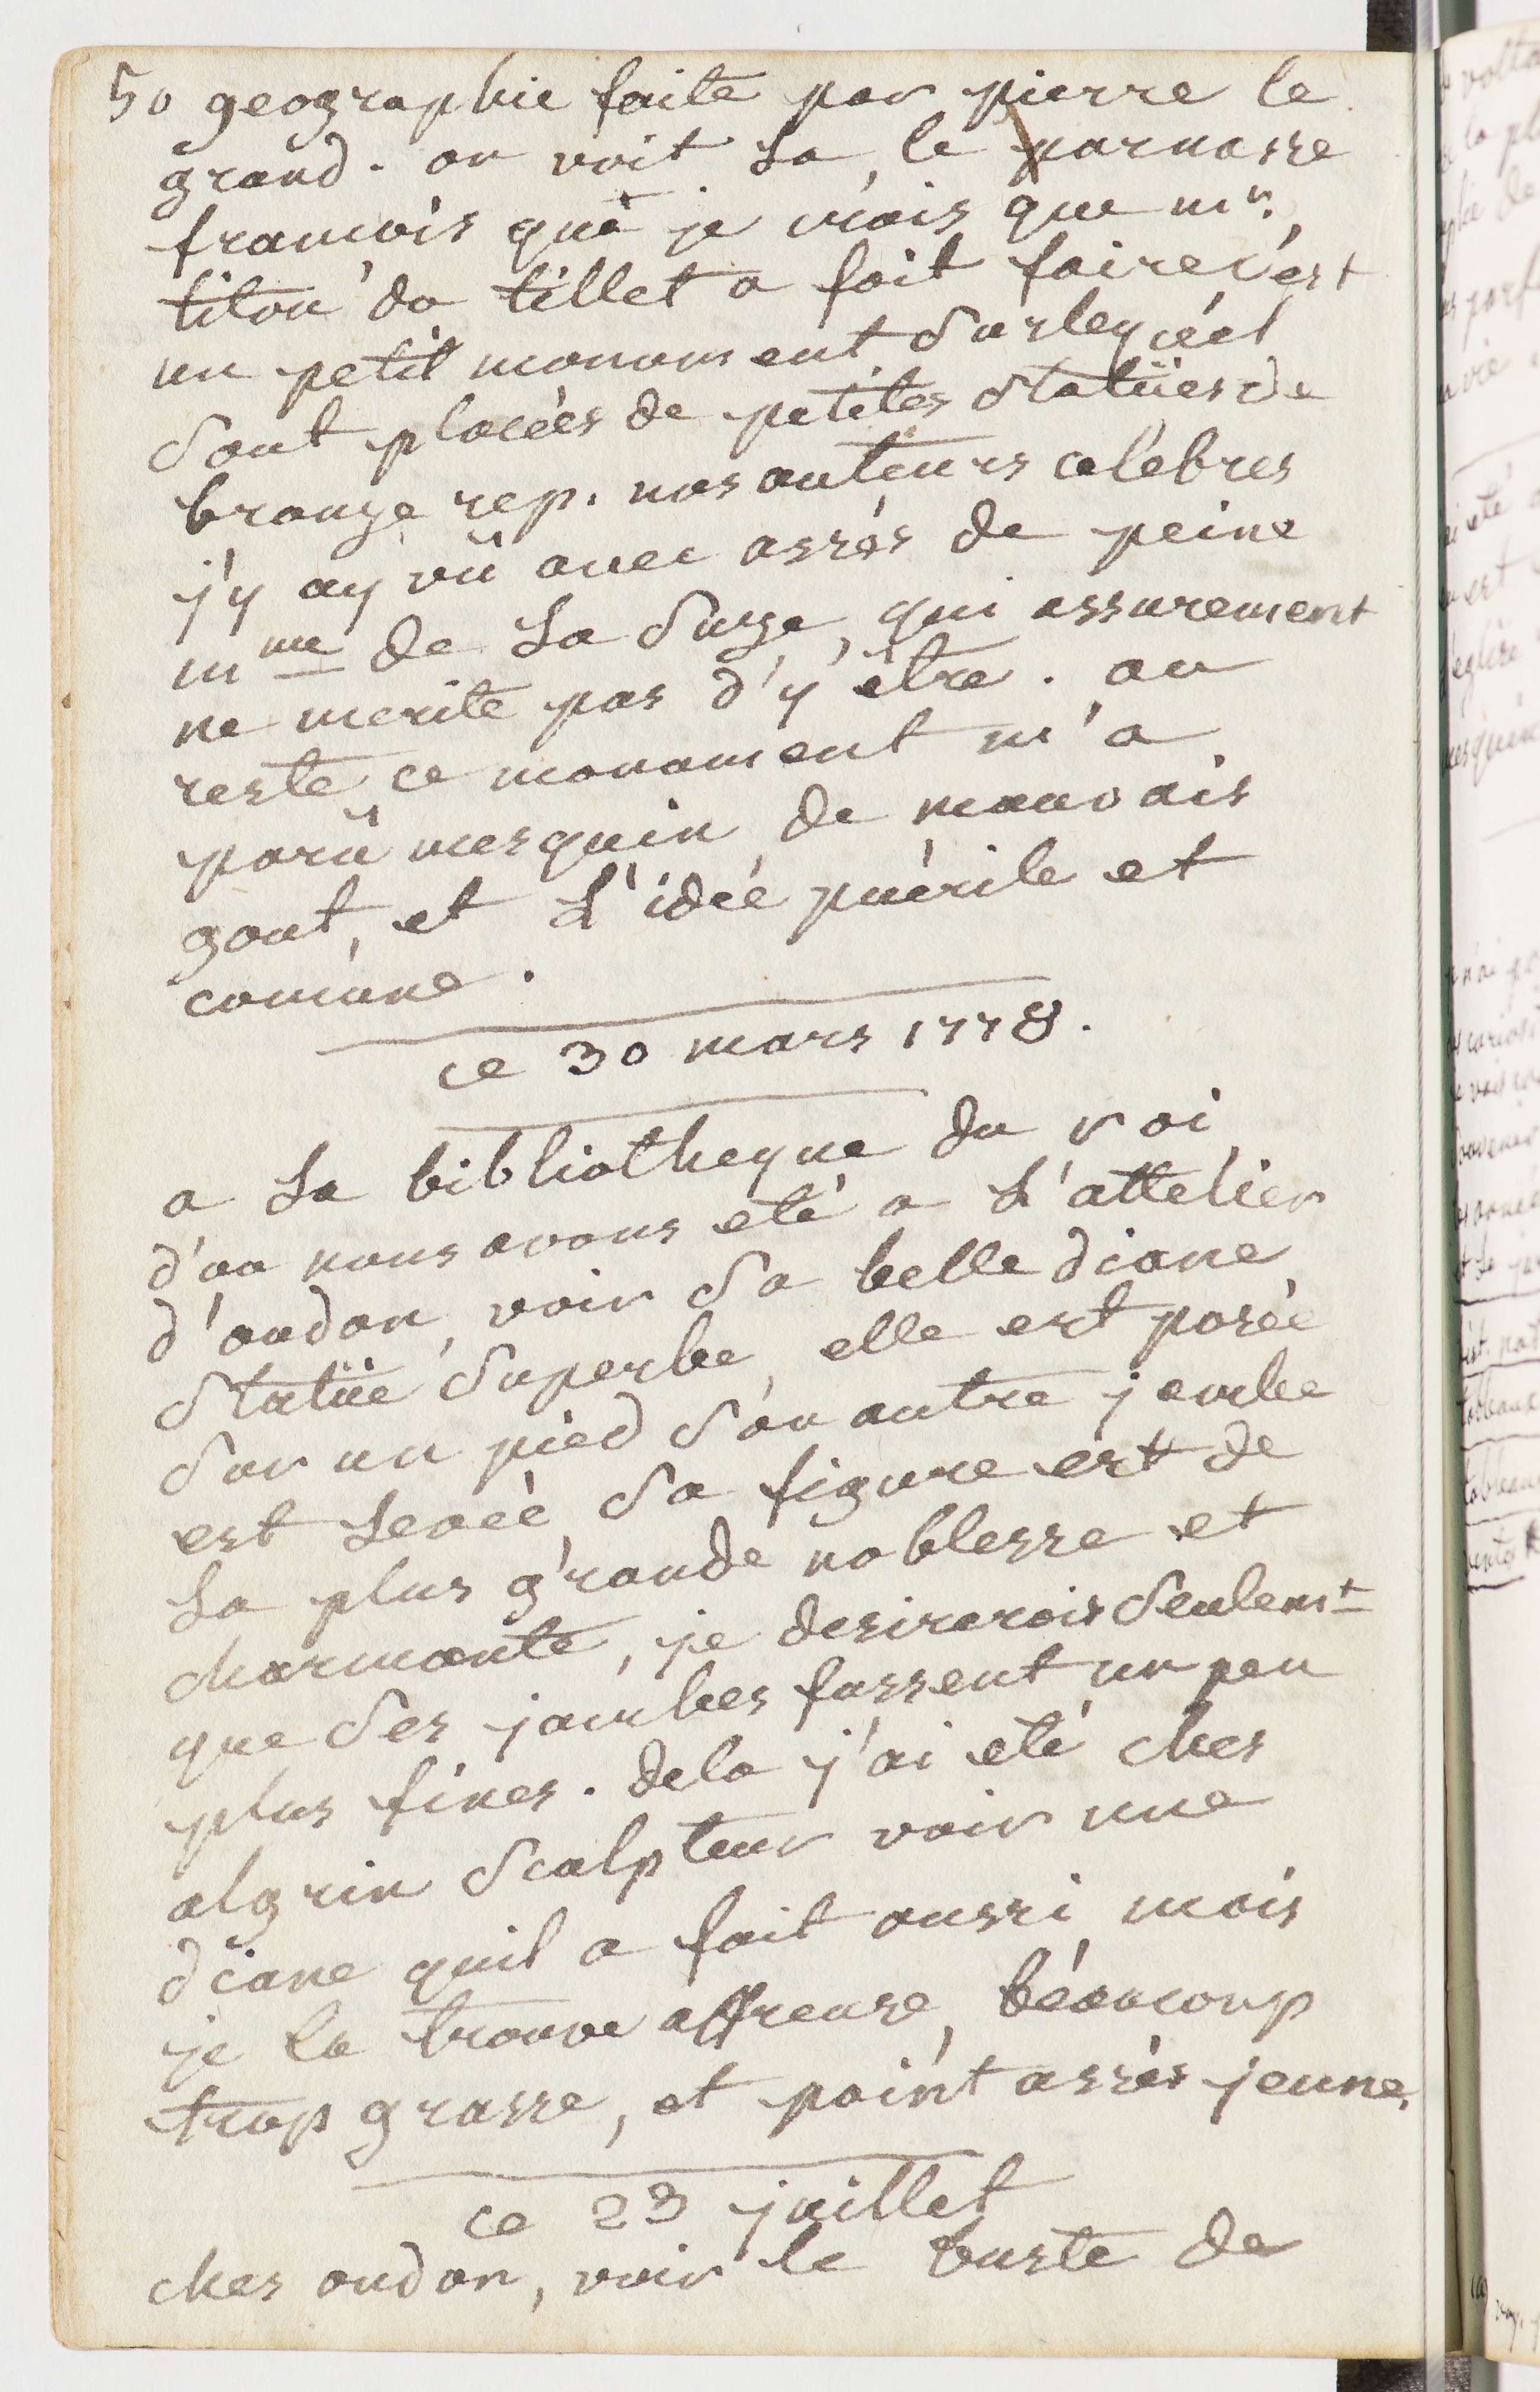 50 geographie faite par pierre le
grand. on voit la, le parnasse
francois que je crois que mr.
titon du tillet a fait faire c'est
un petit monument surlequ'el
sont placées de petites statües de
bronze rep. nos auteurs célebres
j'y ay vû avec assés de peine
mme de la Suze, qui assurement
ne merite pas d'y être. au
reste ce monument m'a
parû mesquin, de mauvais
gout, et l'idée puérile et
comune.
ce 30 mars 1778.
a la bibliotheque du roi
d'ou nous avons eté a l'attelier
d'oudon, voir sa belle diane
statüe superbe, elle est posée
sur un pied son autre jambe
est levée, sa figure est de
la plus grande noblesse et
charmante, je desirerois seulemt
que ses jambes fussent un peu
plus fines. dela j'ai eté ches
algrin sculpteur voir une
diane quil a fait aussi mais
je la trouve affreuse, béaucoup
trop grasse, et point assés jeune.
ce 23 juillet
ches oudon, voir le buste de